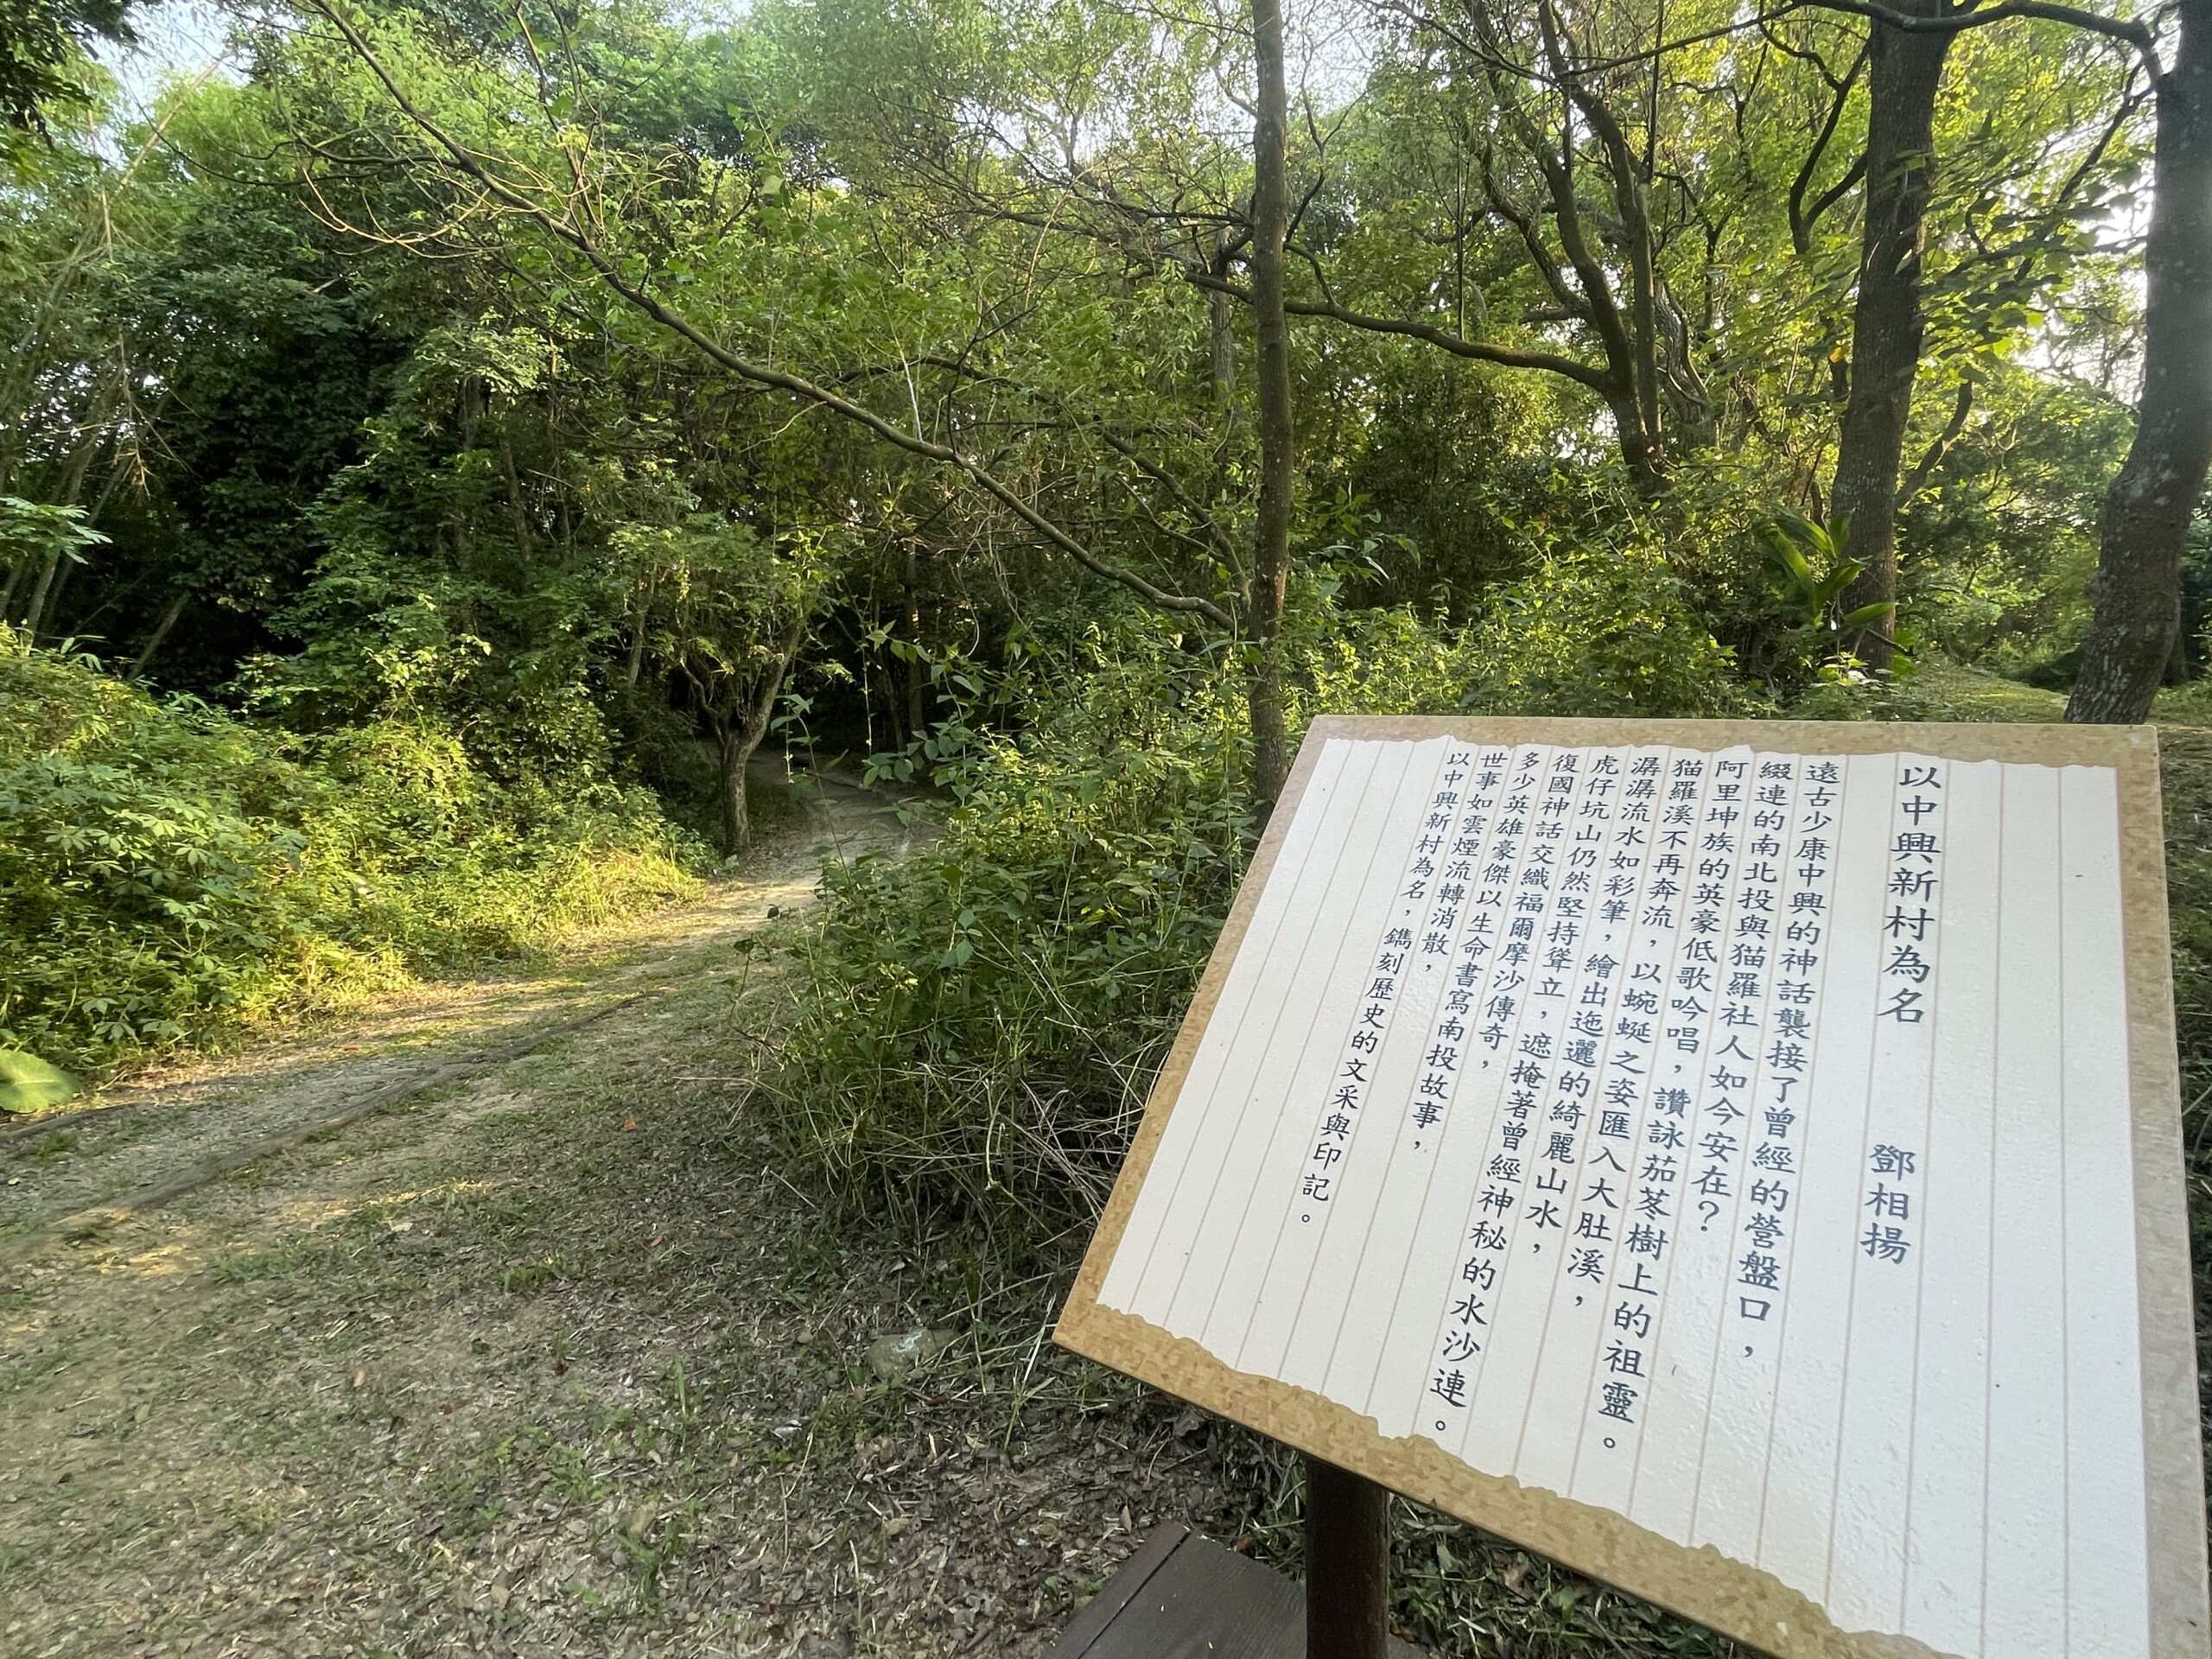 以中興新村為名 鄧相揚
遠古少康中興的神話襲接了曾經的營盤口，
綴連的南北投與猫羅社人如今安在？
阿里坤族的英豪低歌吟唱，讚詠茄苳樹上的祖靈。
猫羅溪不再奔流，以蜿蜒之姿匯入大肚溪，
潺潺流水如彩筆，繪出迤邐的綺麗山水，
虎仔坑山仍然堅持聳立，遮掩著曾經神秘的水沙連。
復國神話交織福爾摩沙傳奇，
多少英雄豪傑以生命書寫南投故事，
世事如雲煙流轉消散，
以中興新村為名，鐫刻歷史的文采與印記。